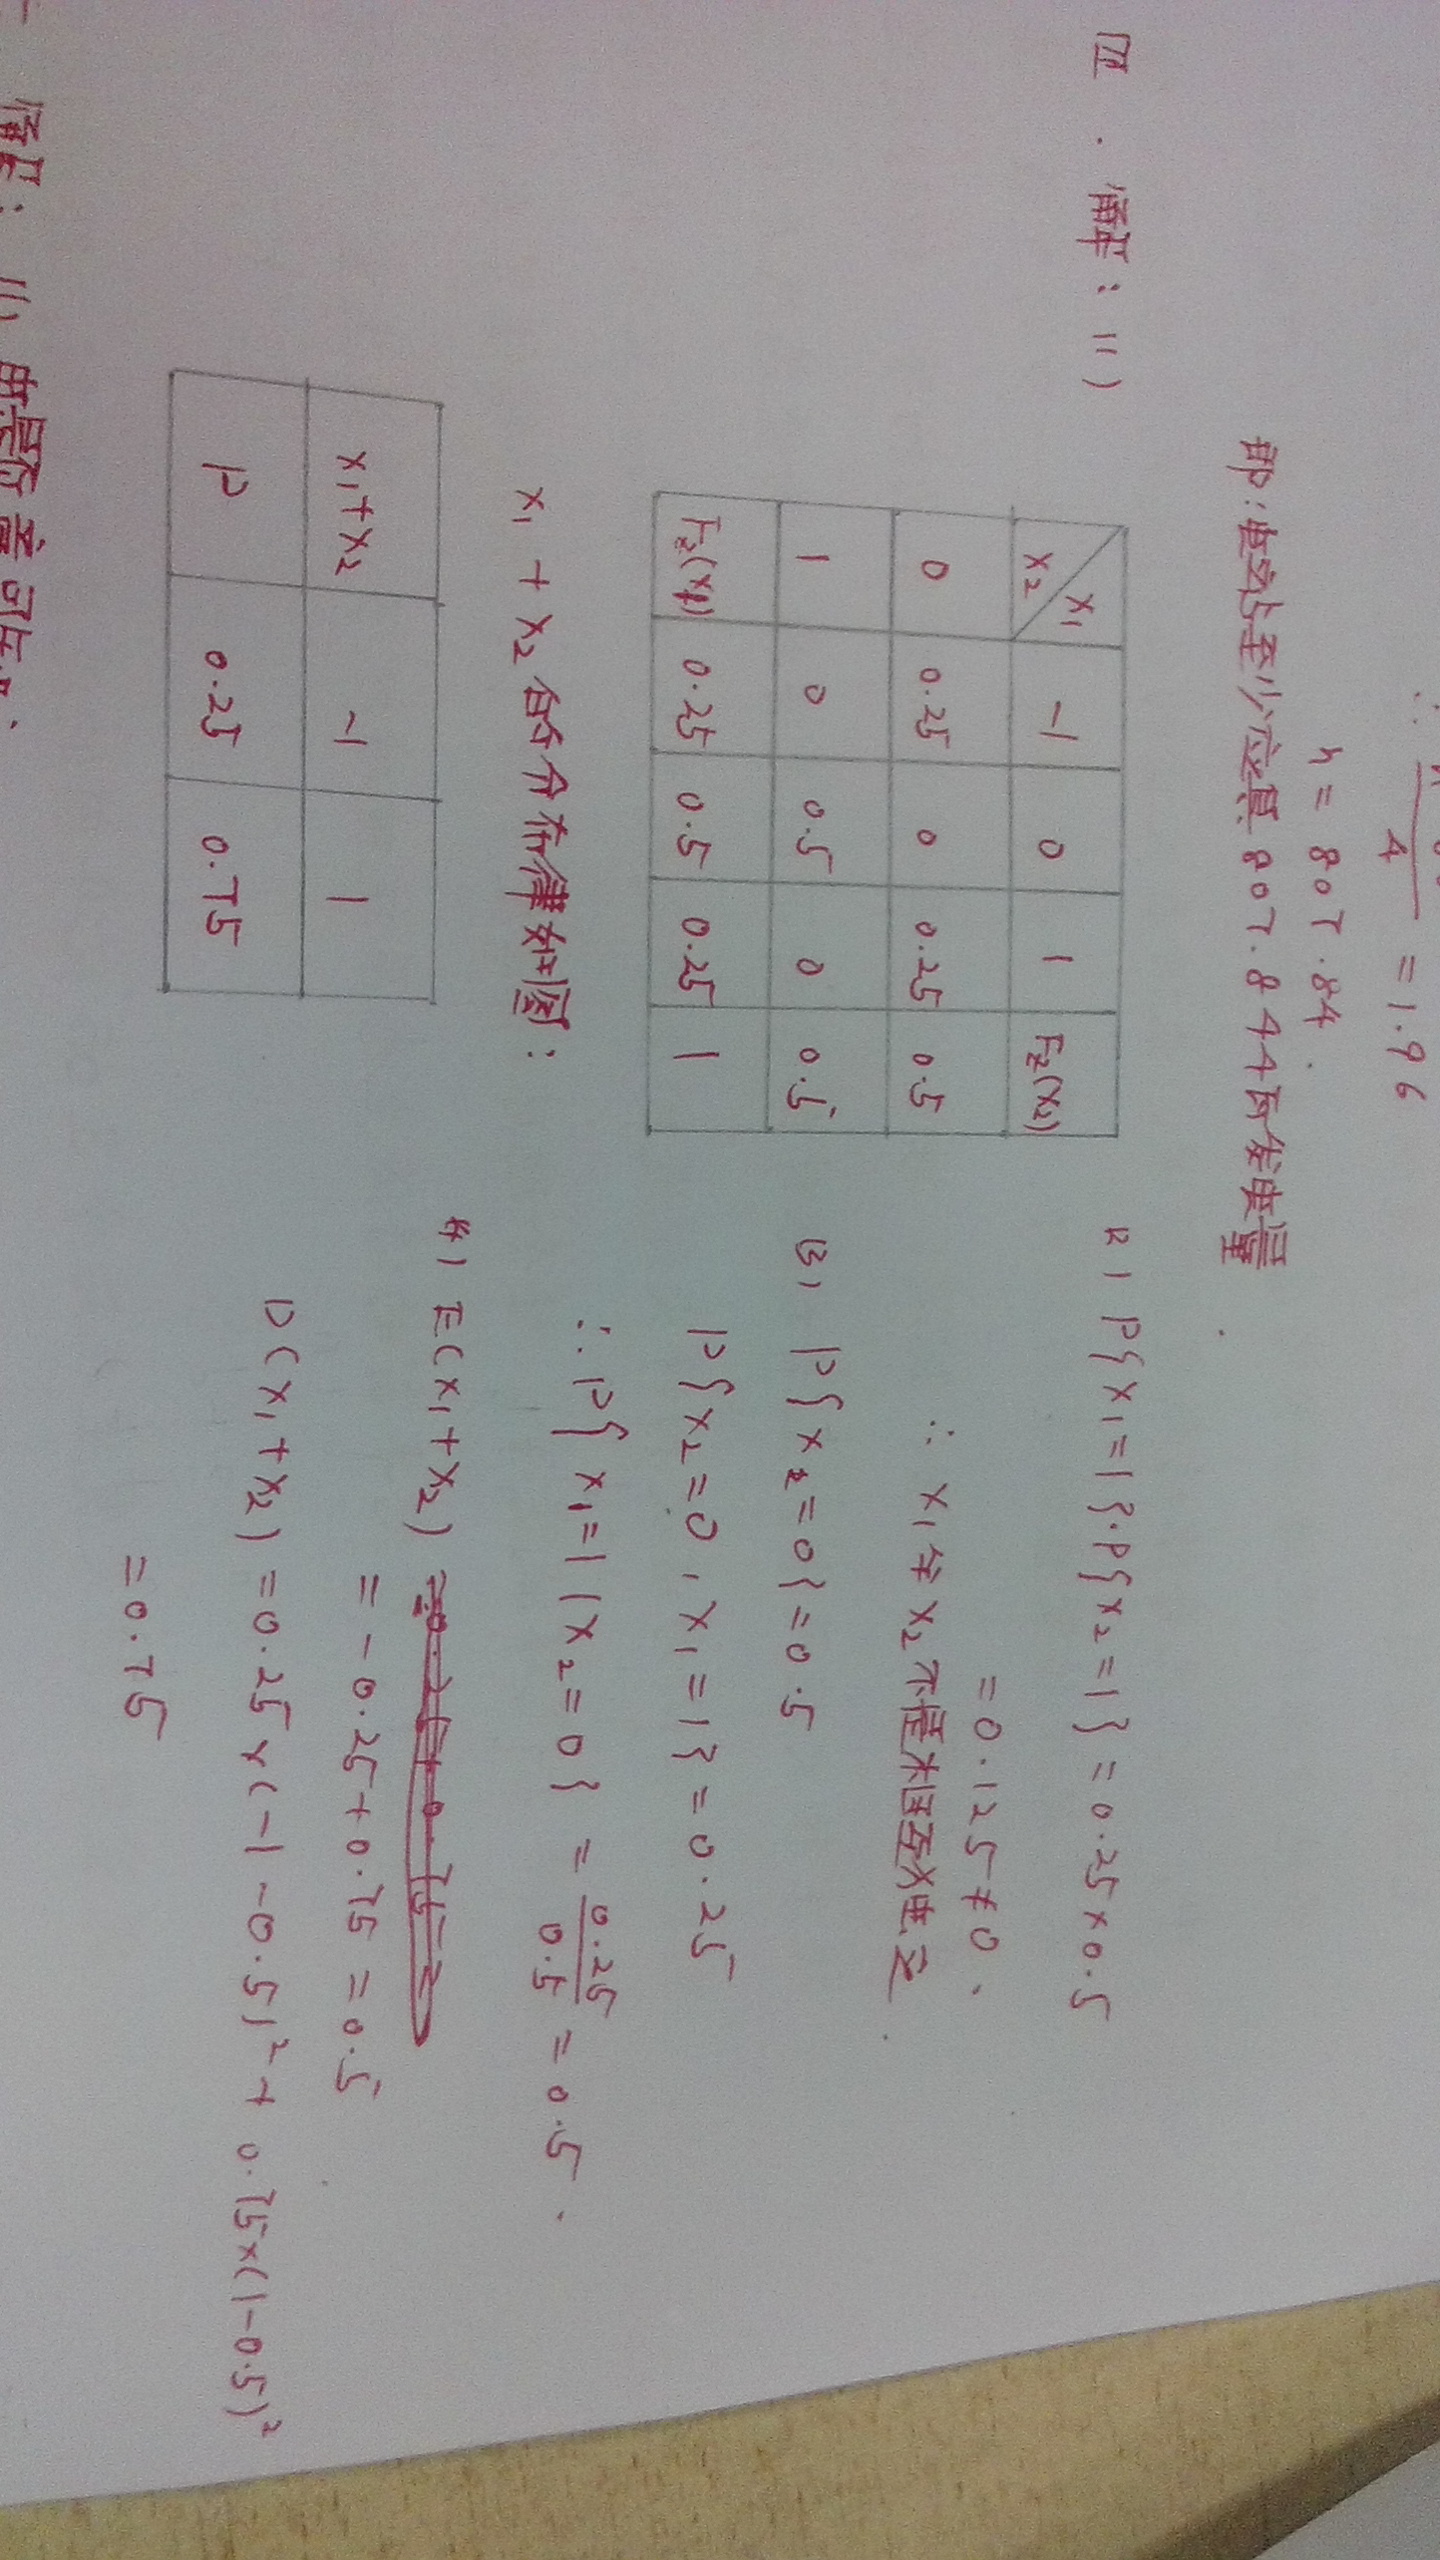 4 = 1.96
n = 807.84.
即:电站至少应具807.844瓦发电量
四.解:(1)
X1 X2 -1 0 1 Fz(X2)
0 0.25 0 0.25 0.5
1 0 0.5 0 0.5
Fz(X1) 0.25 0.5 0.25 1
X1 + X2 的分布律如图:
X1+X2 -1 1
P 0.25 0.75
(2) P{X1=1}·P{X2=1} = 0.25×0.5
= 0.125 ≠ 0.
∴ X1与X2不是相互独立
(3) P{X2=0} = 0.5
P{X2=0, X1=1} = 0.25
∴ P{X1=1|X2=0} = 0.25/0.5 = 0.5.
(4) E(X1+X2)
= -0.25+0.75 = 0.5
D(X1+X2) = 0.25×(-1-0.5)²+0.75×(1-0.5)²
= 0.75
解: (1) 由题意可知: